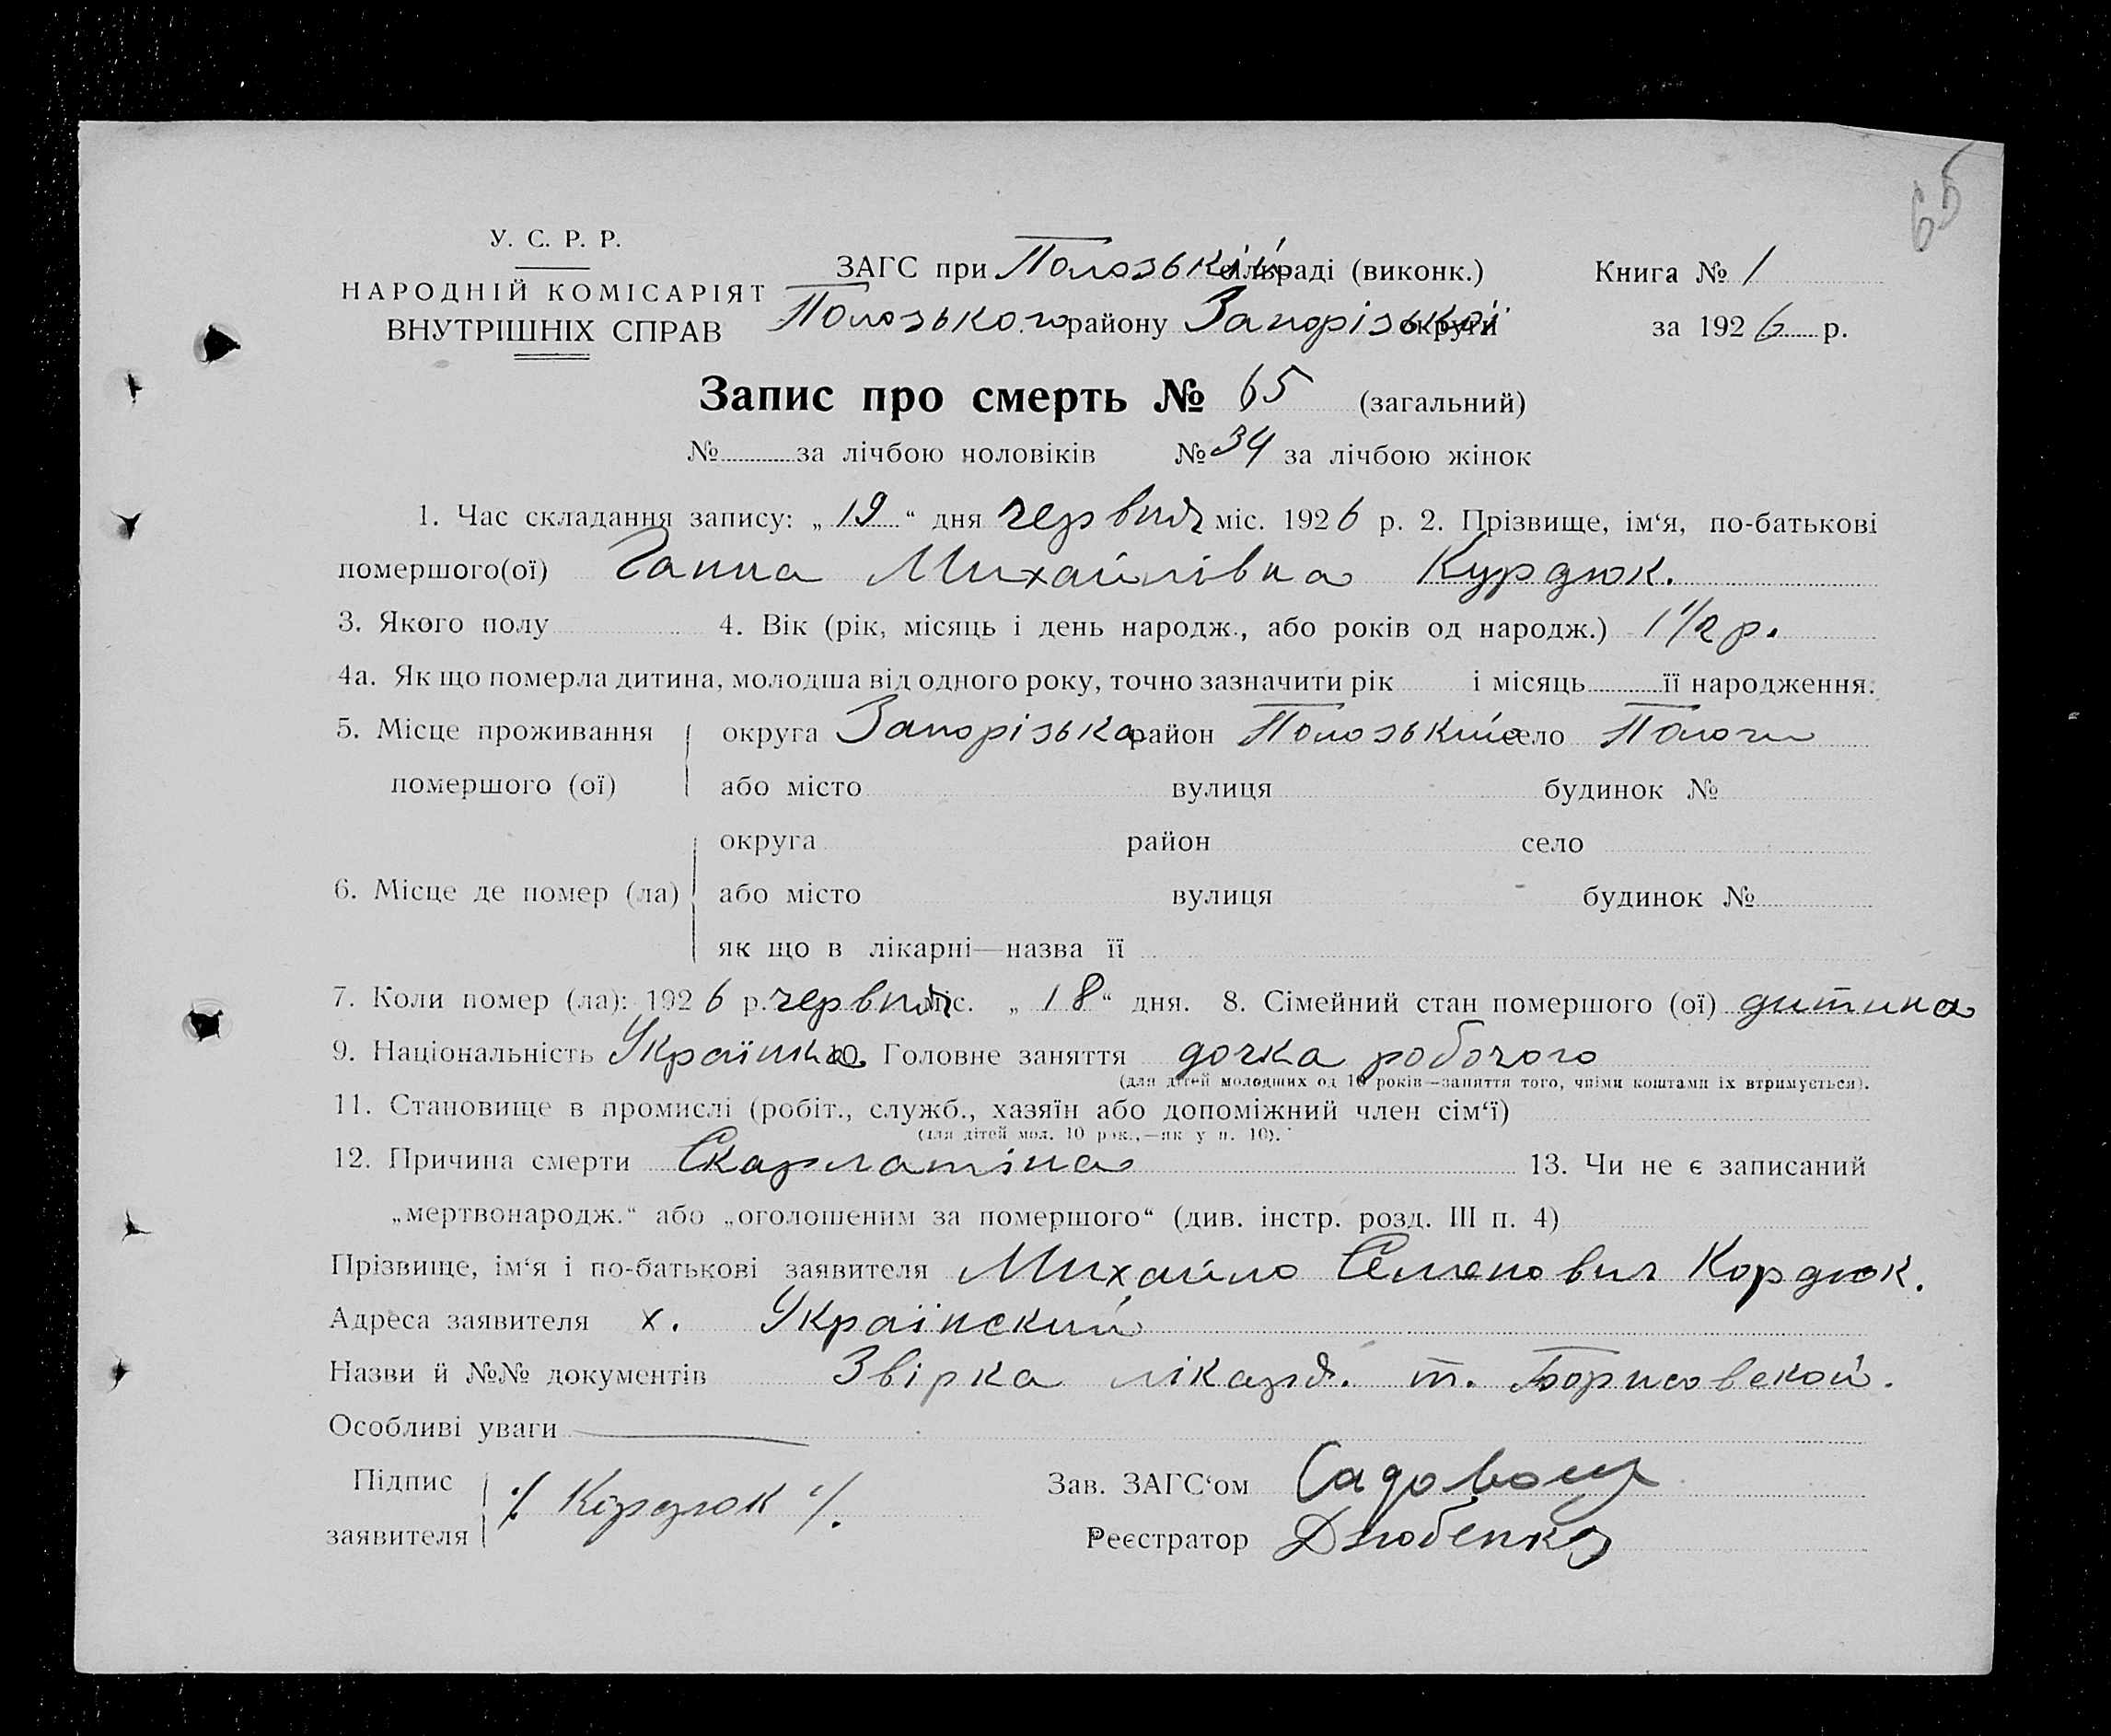 65
У. С. Р. Р.
НАРОДНІЙ КОМІСАРІЯТ
ВНУТРІШНІХ СПРАВ
ЗАГС при Полозькій сільраді (виконк.)
Полозького району Запорізької округи
Книга № 1
за 1926 р.
Запис про смерть № 65 (загальний)
№ за лічбою чоловіків № 34 за лічбою жінок
1. Час складання запису: „19“ дня червня міс. 1926 р. 2. Прізвище, ім‘я, по-батькові
помершого(ої) Ганна Михайлівна Курдюк.
3. Якого полу 4. Вік (рік, місяць і день народж., або років од народж.) 1 1/2 р.
4а. Як що померла дитина, молодша від одного року, точно зазначити рік і місяць її народження.
5. Місце проживання округа Запорізька район Полозький село Пологи
помершого (ої) або місто вулиця будинок №
округа район село
6. Місце де помер (ла) або місто вулиця будинок №
як що в лікарні—назва її
7. Коли помер (ла): 1926 р. червня міс. „18“ дня. 8. Сімейний стан помершого (ої) дитина
9. Національність Українка 10. Головне заняття дочка робочого
(для дітей молодших од 10 років—заняття того, чиїми коштами їх втримується).
11. Становище в промислі (робіт., служб., хазяїн або допоміжний член сім‘ї)
(для дітей мол. 10 рок.,—як у п. 10).
12. Причина смерти Скарлатіна 13. Чи не є записаний
„мертвонародж.“ або „оголошеним за помершого“ (див. інстр. розд. III п. 4)
Прізвище, ім‘я і по-батькові заявителя Михайло Семенович Кордюк.
Адреса заявителя х. Українский
Назви й №№ документів Звірка лікаря. т. Борисовской.
Особливі уваги
Підпис
заявителя /. Кордюк /.
Зав. ЗАГС‘ом
Реєстратор Дзюбенко